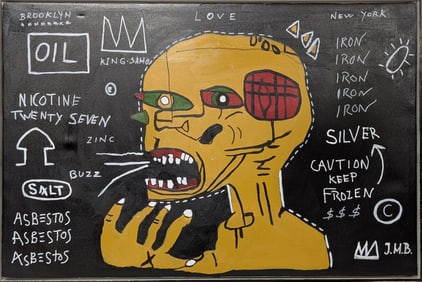 BROOKLYN
LOVE
NEW YORK
OIL
KING-SAMO
IRON
IRON
IRON
IRON
IRON
NICOTINE
TWENTY SEVEN
ZINC
SILVER
BUZZ
CAUTION
KEEP
FROZEN
$ $ $
SALT
ASBESTOS
ASBESTOS
ASBESTOS
©
J.M.B.